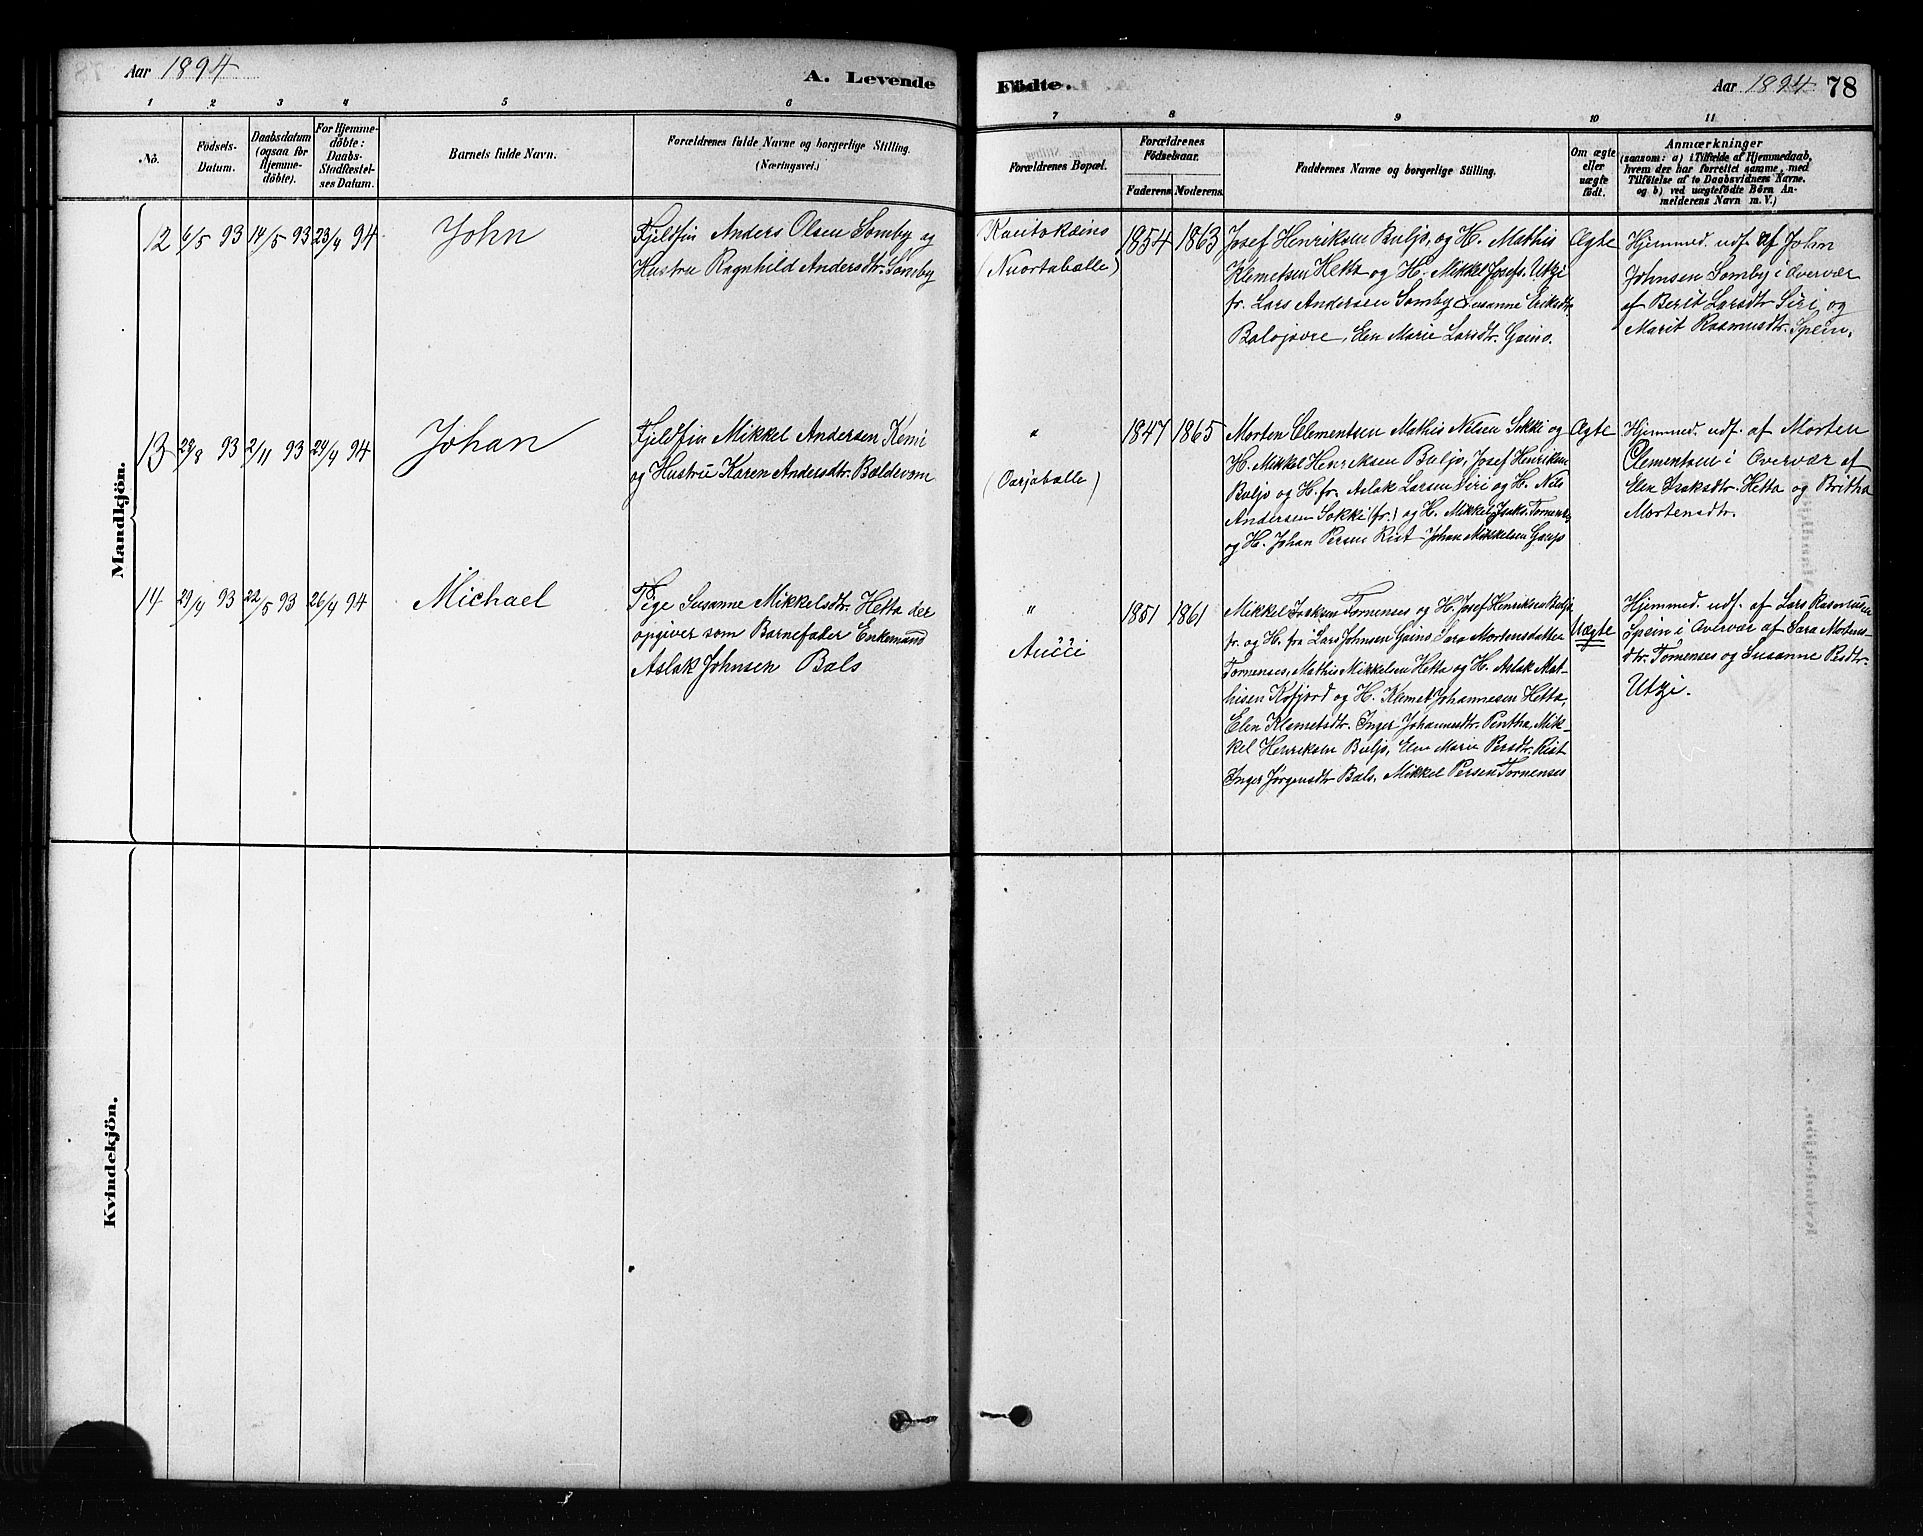 Aar 1894
A. Levende
Fødte.
Aar 1894
78
1 2 3 4 5 6 7 8 9 10 11
No.
Fødsels-
Datum.
Daabsdatum
(ogsaa for
Hjemme-
døbte).
For Hjemme-
døbte:
Daabs-
Stadfæstel-
ses Datum.
Barnets fulde Navn.
Forældrenes fulde Navne og borgerlige Stilling.
(Næringsvei.)
Forældrenes Bopæl.
Forældrenes
Fødselsaar.
Faderens. Moderens.
Faddernes Navne og borgerlige Stilling.
Om ægte
eller
uægte
født.
Anmærkninger
(saasom: a) i Tilfælde af Hjemmedaab,
hvem der har forrettet samme, med
Tilføielse af to Daabsvidners Navne,
og b) ved uægtefødte Børn An-
melderens Navn m. V.)
Mandkjøn.
12 6/5 93 14/5 93 23/4 94 John
Fjeldfin Anders Olsen Somby og
Hustru Ragnhild Andersdtr. Somby
Kautokeino
(Nuortabælle)
1854 1863
Josef Henriksen Buljo, og H. Mathis
Klemetsen Hetta og H. Mikkel Josefs. Utzi
fr. Lars Andersen Somby Susanne Eriksdtr.
Balojavre, Elen Marie Larsdtr. Gaino.
Ægte
Hjemmed. udf. af John
Johnsen Somby i Overvær
af Berit Larsdtr. Siri og
Marit Rasmusdtr. Spein.
13 29/8 93 2/11 93 24/4 94 Johan
Fjeldfin Mikkel Andersen Kemi
og Hustru Karen Andersdtr. Bældevom
"
(Oarjabælle)
1847 1865
Morten Clementsen Mathis Nilsen Sokki og
H. Mikkel Henriksen Buljo, Josef Henriksen
Buljo og H. fr. Aslak Larsen Siri og H. Nils
Andersen Sokki (fr.) og H. Mikkel Isaks. Tornenses
og H. Johan Persen Rist - Johan Mikkelsen Gaup
Ægte
Hjemmed. udf. af Morten
Clementsen i Overvær af
Elen Isaksdtr. Hetta og Britha
Mortensdtr.
14 29/4 93 22/5 93 26/4 94 Michael
Pige Susanne Mikkelsdtr. Hetta der
opgiver som Barnefader Enkemand
Aslak Johnsen Bals
"
Aucci
1851 1861
Mikkel Isaksen Tornenses og H. Josef Henriksen Buljo
fr. og H. fra Lars Johnsen Gaino, Sara Mortensdatter
Tornenses, Mathis Mikkelsen Hetta og H. Aslak Mat-
hisen Kofjord og H. Klemet Johannesen Hetta,
Elen Klemetsdtr. Inger Johannesdtr. Pentha, Mik-
kel Henriksen Buljo, Elen Marie Persdtr. Rist
Inger Jørgensdtr Bals, Mikkel Persen Tornenses
Uægte
Hjemmed. udf. af Lars Rasmusen
Spein i Overvær af Sara Mortens-
dtr. Tornenses og Susanne
Utzi.
Kvindekjøn.